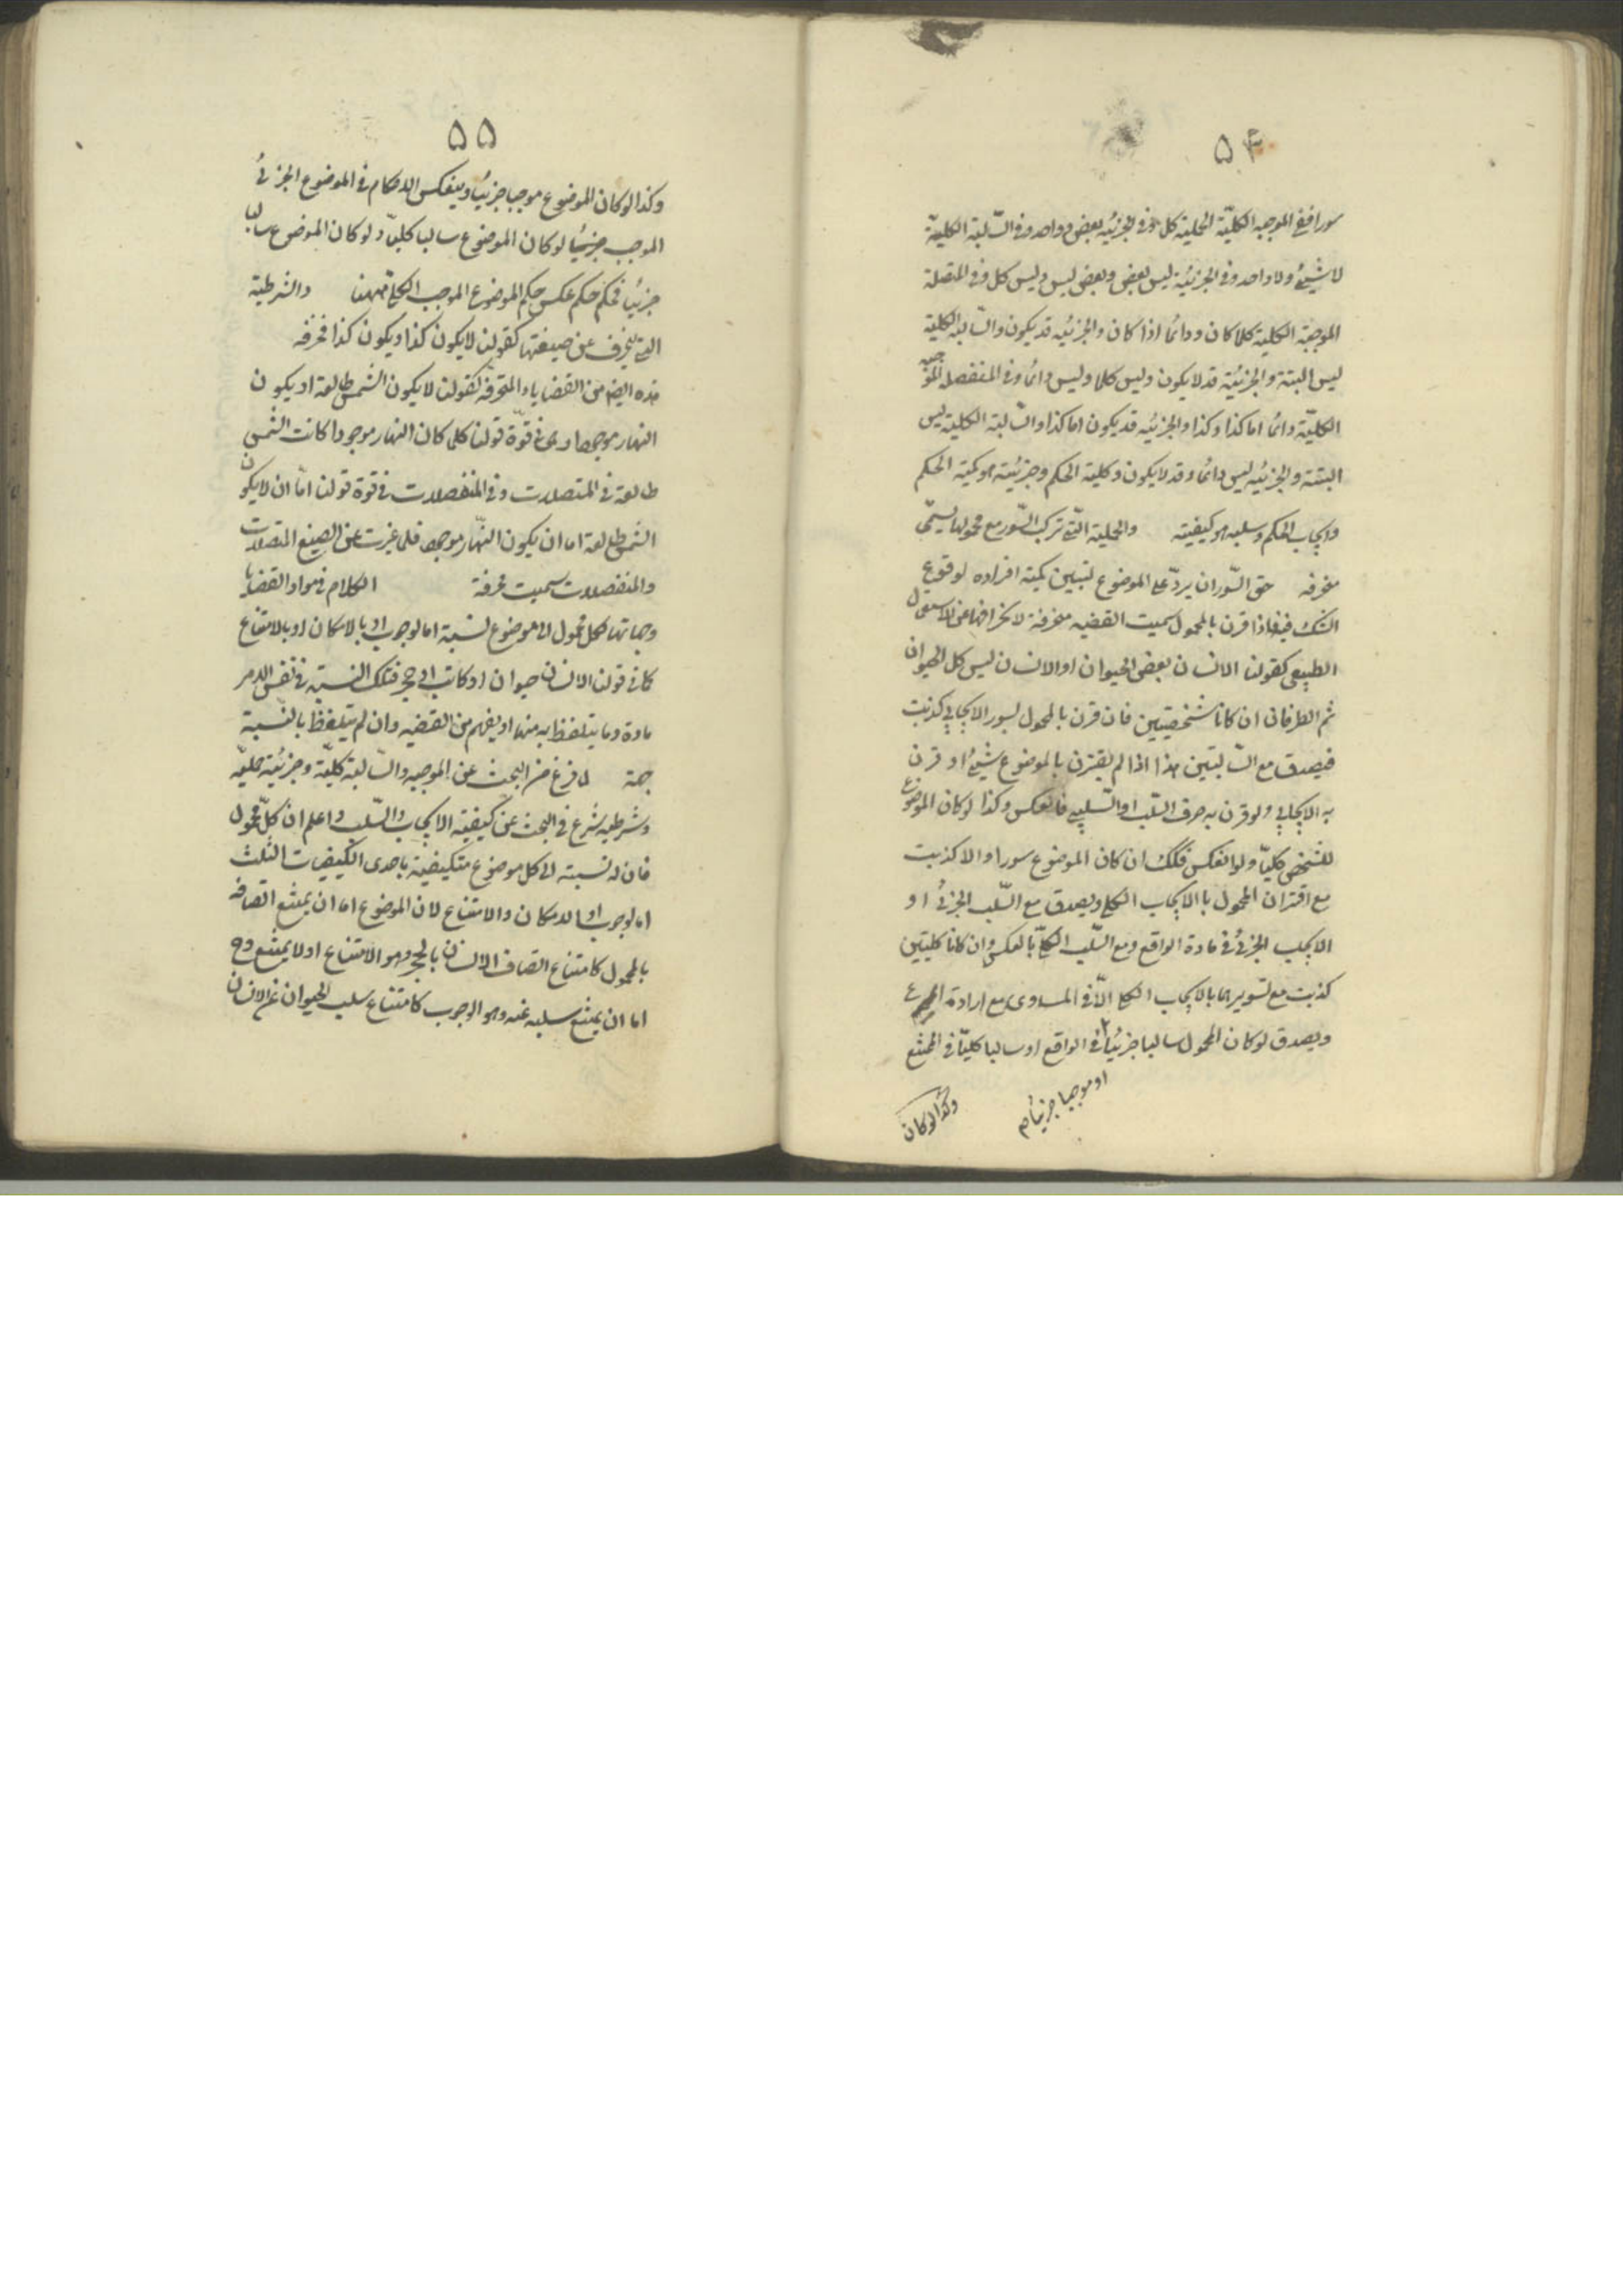 ۵۴
سورا ففى الموجبة الكليّة الحملية كل وفى الجزئيّة بعض وواحد وفى السّالبة الكليّة
لا شيئ ولا واحد وفى الجزئيّة ليس بعض وبعض ليس وليس كل وفى المتصلة
الموجبة الكلية كلما كان ودائما اذا كان والجزئيّه قد يكون والسّالبة الكليّة
ليس البتة والجزئيّة قد لا يكون وليس كلما وليس دائما وفى المنفصلة الموجبه
الكليّة دائما اما كذا وكذا والجزئيّه قد يكون اما كذا والسّالبة الكلية ليس
البتة والجزئيّه ليس دائما وقد لا يكون وكلية الحكم وجزئيّته هو كمية الحكم
وايجاب الحكم وسلبه هو كيفيته والحملية الّتى تركب السّور مع محمولها يسمّى
منحرفه حق السّور ان يردّ على الموضوع لتبيين كمية افراده لوقوع
الشك فيه فاذا قرن بالمحمول سميت القضيه منحرفة لانحرافها عن الاستعمال
الطبيعى كقولنا الانسان بعض الحيوان او الانسان ليس كل الحيوان
ثم الطرفان ان كانا شخصيتين فان قرن بالمحمول لسور الايجابى كذبت
فيصدق مع السّالبتين هذا اذا لم يقترن بالموضوع شيئ او قرن
به الايجابى ولو قرن به حرف السّلب او السّلبى فانعكس وكذا لو كان الموضوع
للشخص كليّا ولو انعكس فكك ان كان الموضوع سورا والا كذبت
مع اقتران المحمول بالايجاب الكلى ويصدق مع السّلب الجزئى او
الايجاب الجزئى فى مادة الواقع ومع السّلب الكلّى بالعكس وان كانا كليتين
كذبت مع تسويرهما بالايجاب الكلى الّا فى المساوى مع ارادة
ويصدق لو كان المحمول سالبا جزئيّا فى الواقع او سالبا كليّا فى الممتنع
او موجبا جزئيا م
وكذا لو كان
۵۵
وكذا لو كان الموضوع موجبا جزئيّا وينعكس الاحكام فى الموضوع الجزئى
الموجب جزئيّا لو كان الموضوع سالبا كليّا ولو كان الموضوع سالبا
جزئيّا فحكم حكم عكس حكم الموضوع الموجب الكلى فههنا والشرطية
التى تحرف عن صيغتها كقولنا لا يكون كذا ويكون كذا محرفه
هذه ايضا من القضايا المتحرفة كقولنا لا يكون الشمس طالعة او يكون
النهار موجودا وهى فى قوّة قولنا كلما كان النهار موجودا كانت الشمس
طالعة فى المتصلات وفى المنفصلات فى قوة قولنا امّا ان لا يكون
الشمس طالعة اما ان يكون النّهار موجودا فلما غيرت عن الصيغ المتصلات
والمنفصلات سميت محرفة الكلام فى مواد القضايا
وجهاتها لكل محمول الى موضوع نسبة اما لوجوب او بالامكان او بالامتناع
كما فى قولنا الانسان حيوان او كاتب او حجر فتلك النسبة فى نفس الامر
مادة وما يتلفظ به منها او يفهم من القضيه وان لم يتلفظ بالنسبة
جهة لما فرغ من البحث عن الموجبه والسّالبة كليّة وجزئيّة حمليّه
وشرطيه شرع فى البحث عن كيفيّة الايجاب والسّلب واعلم ان كلّ محمول
فان له نسبته الى كل موضوع متكيفية باحدى الكيفيات الثلث
اما لوجوب او الامكان والامتناع لان الموضوع اما ان يمتنع اتصافه
بالمحمول كامتناع اتصاف الانسان بالحجر وهو الامتناع اولا يمتنع وح
اما ان يمتنع سلبه عنه وهو الوجوب كامتناع سلب الحيوان عن الانسان